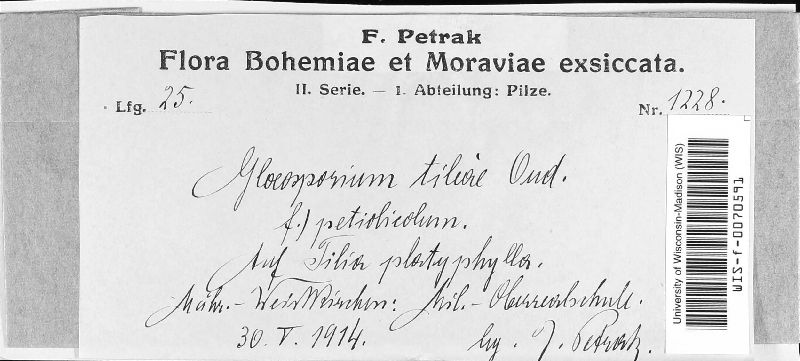 F. Petrak
Flora Bohemiae et Moraviae exsiccata.
II. Serie. — 1. Abteilung: Pilze.
Lfg. 25.
Nr. 1228.
Gloeosporium tiliae Oud.
f.) petiolicolum.
Auf Tilia platyphylla.
Mähr.-Weisskirchen: Mil.-Oberrealschule.
30. V. 1914.
lg. J. Petrak.
University of Wisconsin-Madison (WIS)
WIS-f-0070591